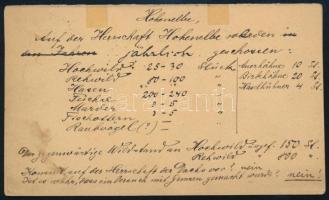 Hohenelbe,
Auf der Herrschaft Hohenelbe werden in
den Jahren jährlich geschossen:
Hochwild 25-30 Stück Auerhähne 10 St.
Rehwild 80-100 " Birkhähne 20 St.
Hasen 200-240 " Haselhühner 4 St.
Füchse 3-5 "
Marder 3-5 "
Fischottern —
Raubvögel (?) —
Der gegenwärtige Wildstand an Hochwild 150 St.
Rehwild 800 "
Kommt auf der Herrschaft der Dachs vor? nein
Ist es wahr, dass ein Versuch mit gemacht wurde? nein!